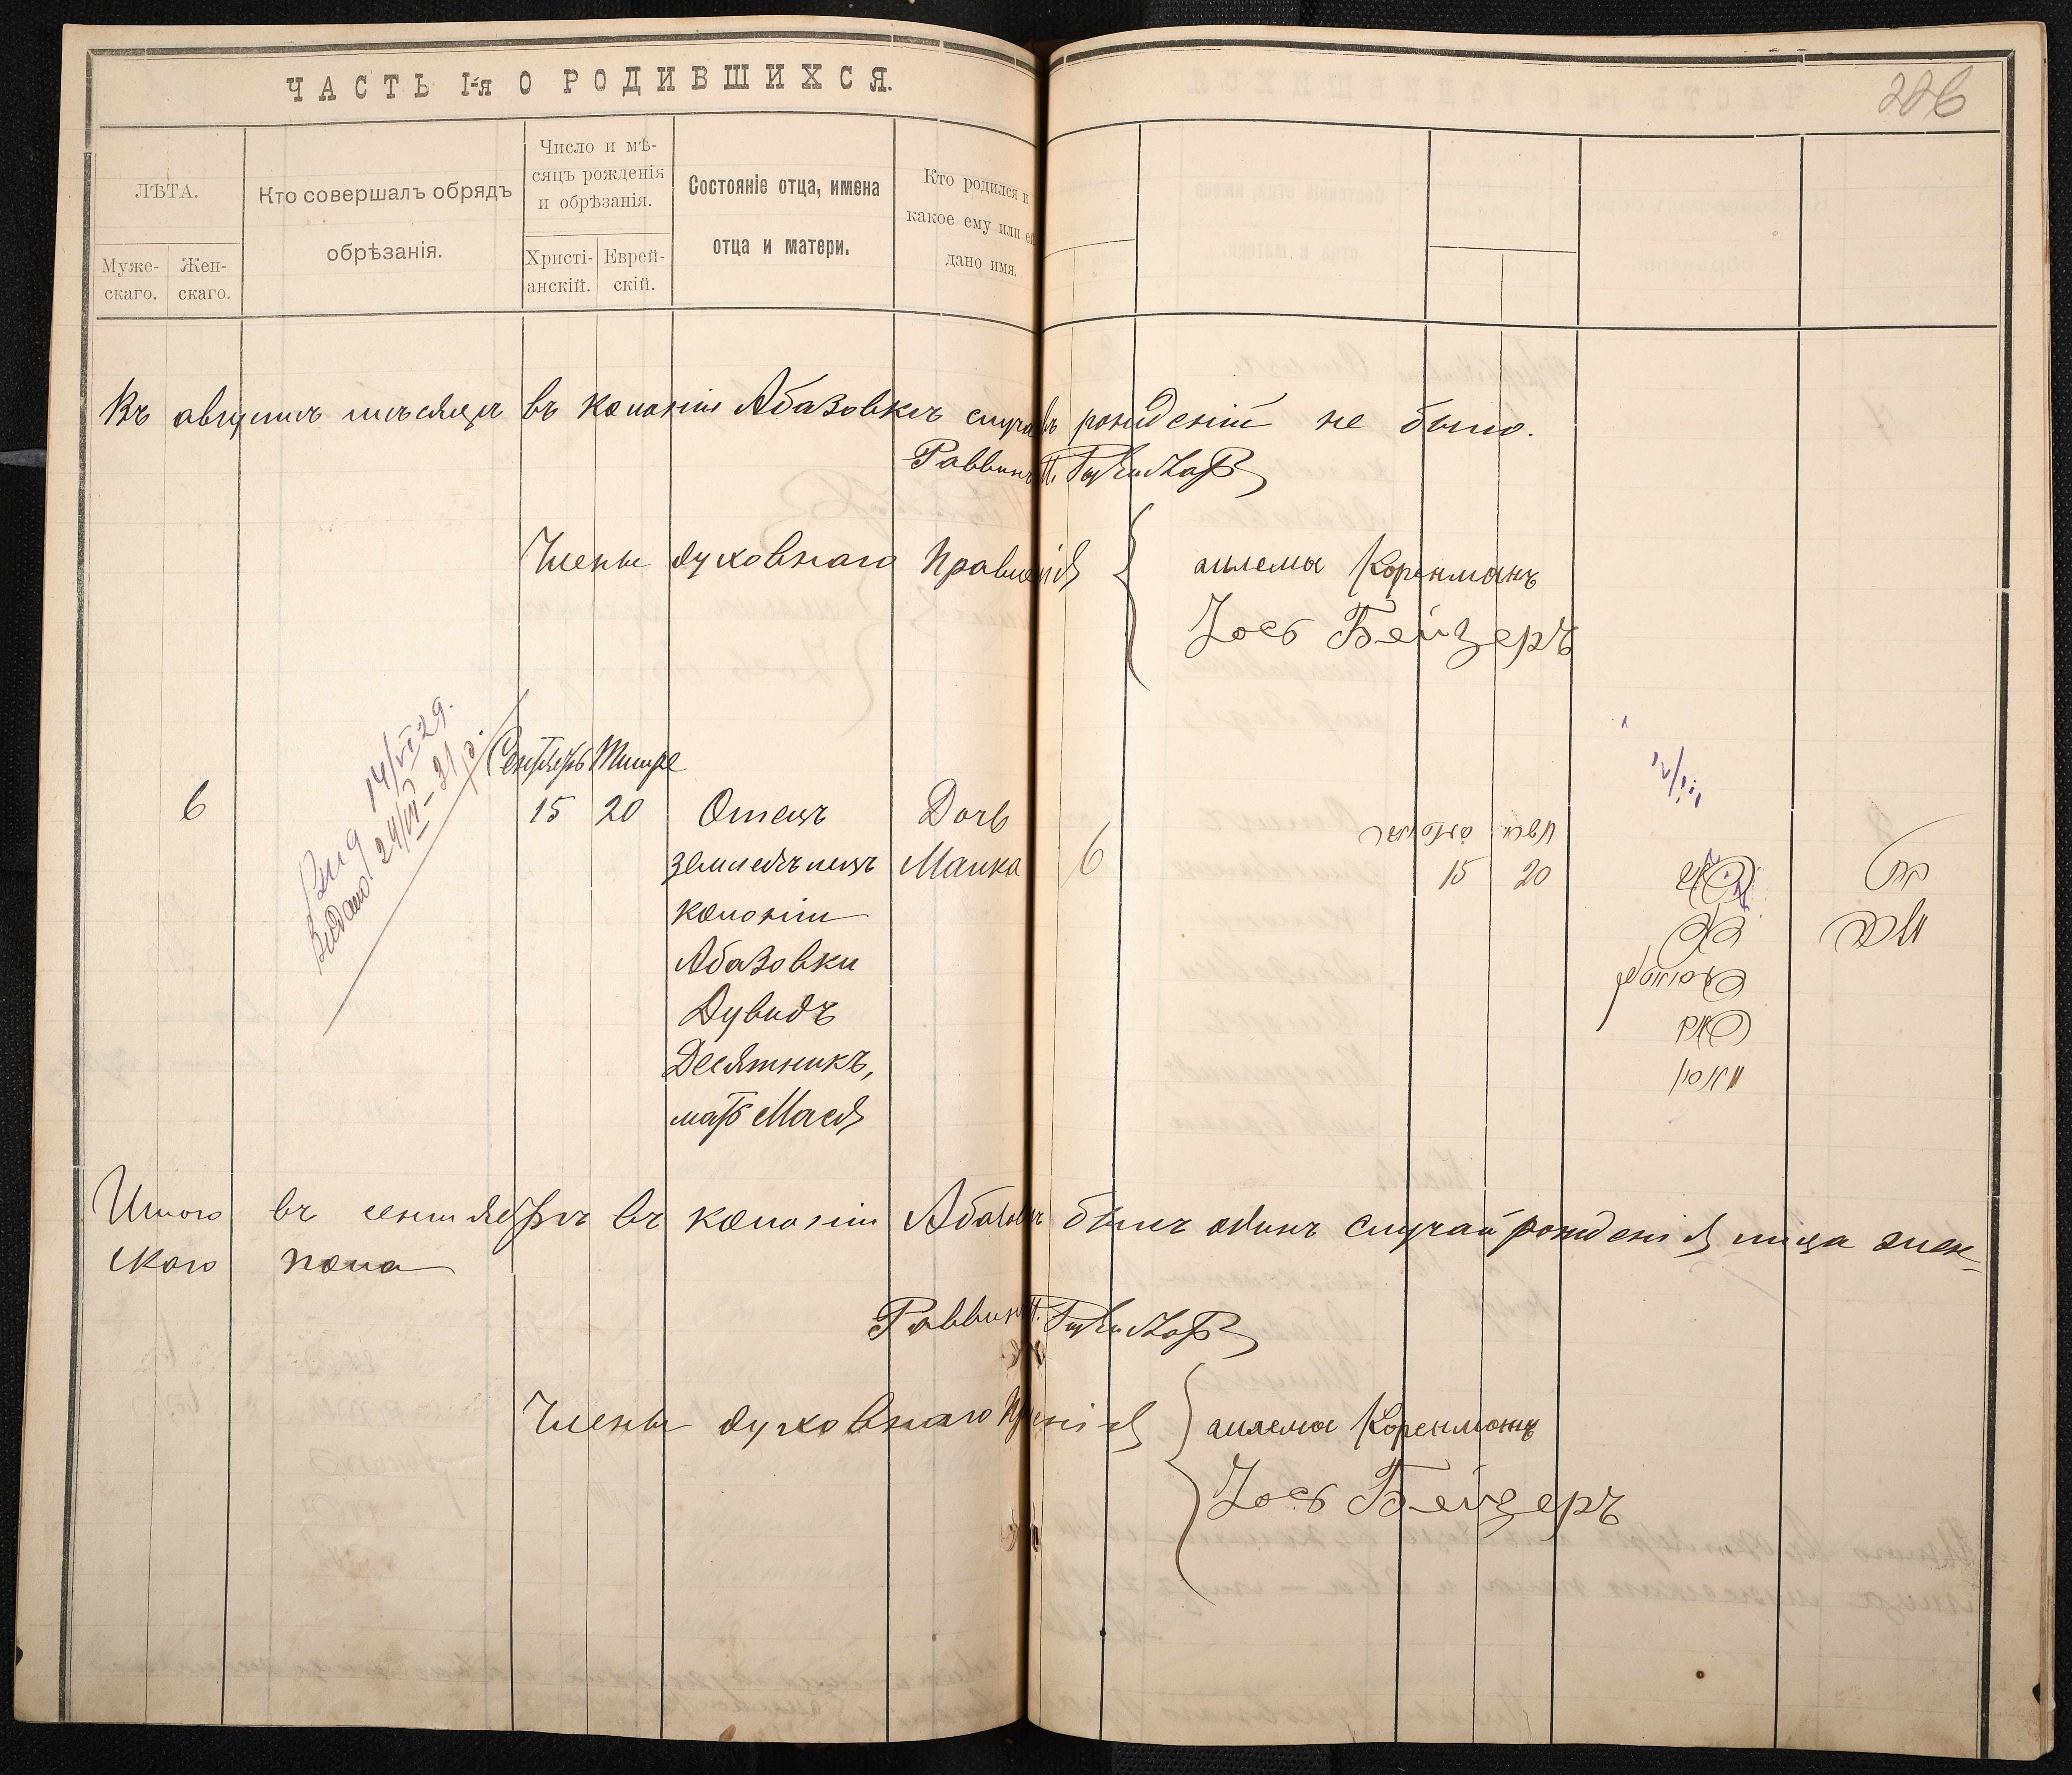 ЧАСТЬ I-я О РОДИВШИХСЯ.
226
ЛѢТА.
Муже-
скаго.
Жен-
скаго.
Кто совершалъ обрядъ
обрѣзанія.
Число и мѣ-
сяцъ рожденія
и обрѣзанія.
Христі-
анскій.
Еврей-
скій.
Состояніе отца, имена
отца и матери.
Кто родился и
какое ему или ей
дано имя.
Въ августѣ мѣсяцѣ въ колоніи Абазовкѣ случаевъ рожденій не было.
Раввинъ
Члены духовнаго Правленія
Коренманъ
Іось Бейзеръ
14/VI 29.
Выдано 24/VII-31
Сентябрь Тишре
6 15 20 Отецъ Дочь
земледѣлецъ Малка 6
колоніи 15 20
Абазовки
Дувидъ
Десятникъ,
мать Мася
Итого въ сентябрѣ въ колоніи Абазовкѣ былъ одинъ случай рожденія лица жен-
скаго пола
Раввинъ
Члены духовнаго
Коренманъ
Іось Бейзеръ